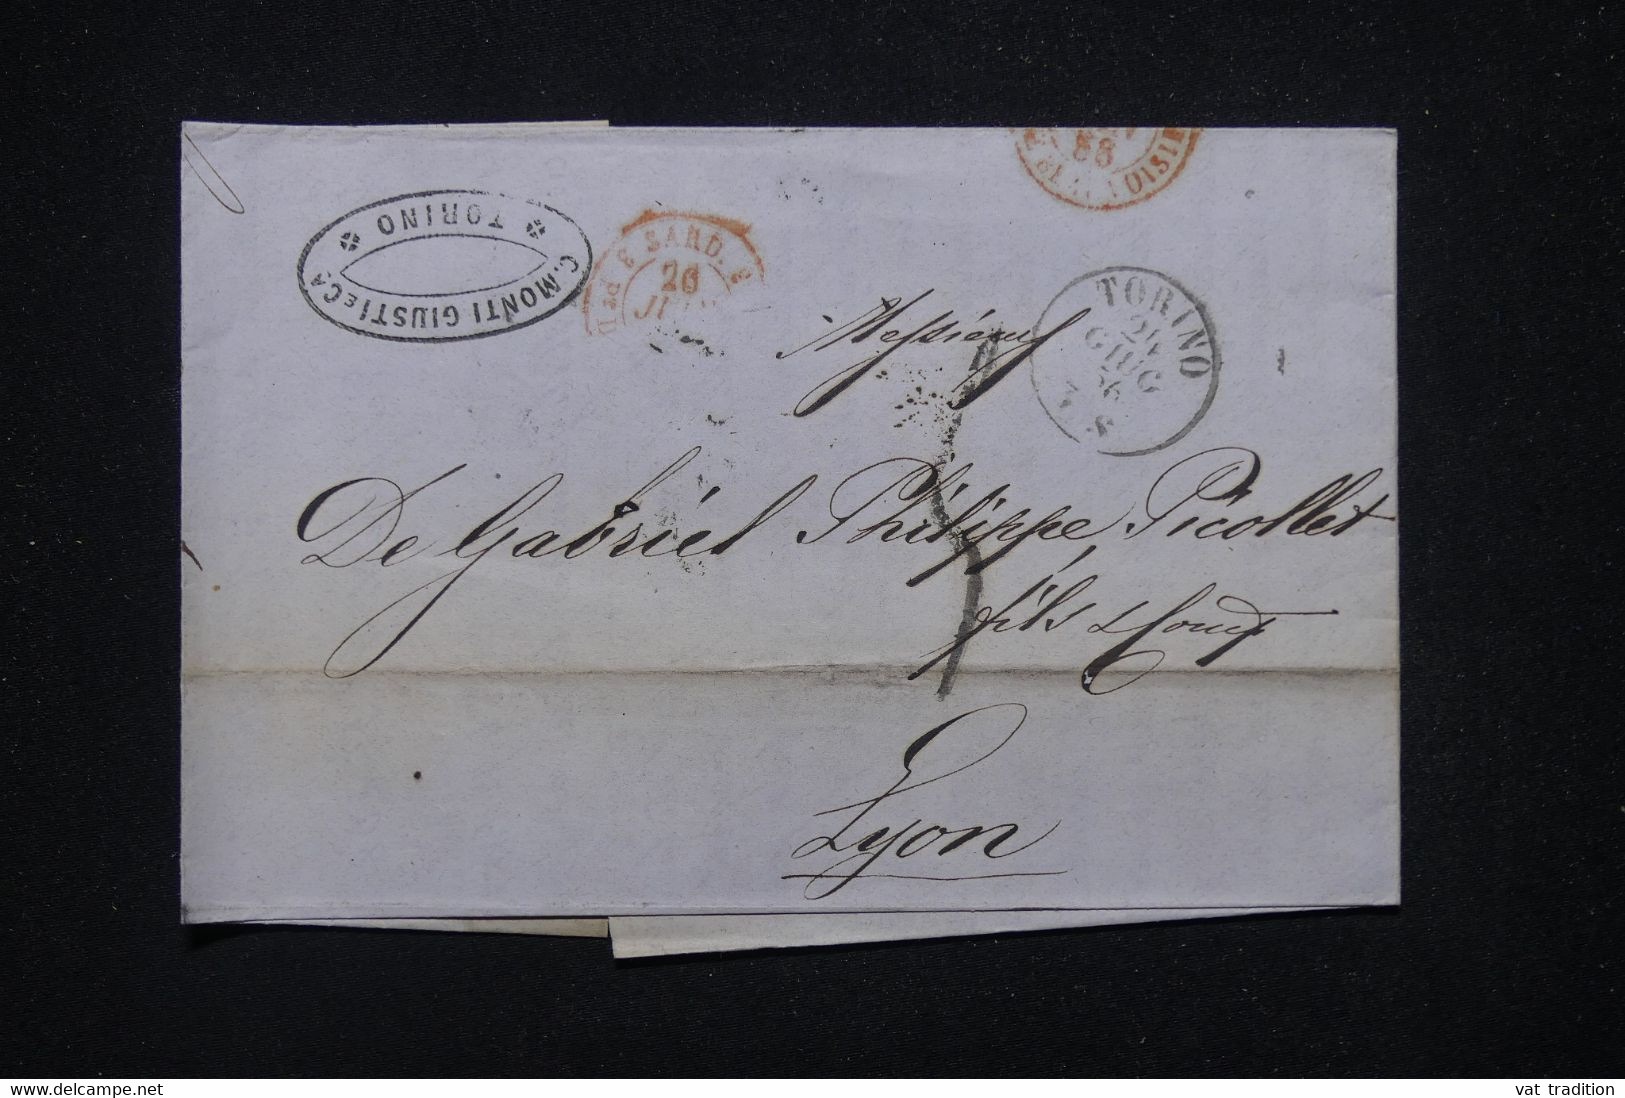 C. MONTI GIUSTI e CA
TORINO
3 SARD. 3
26
JUIN
TORINO
GIUG
56
7 S
Messieurs
De Gabriel Philippe Picollet
fils & Comp
Lyon
www.delcampe.net
vat tradition